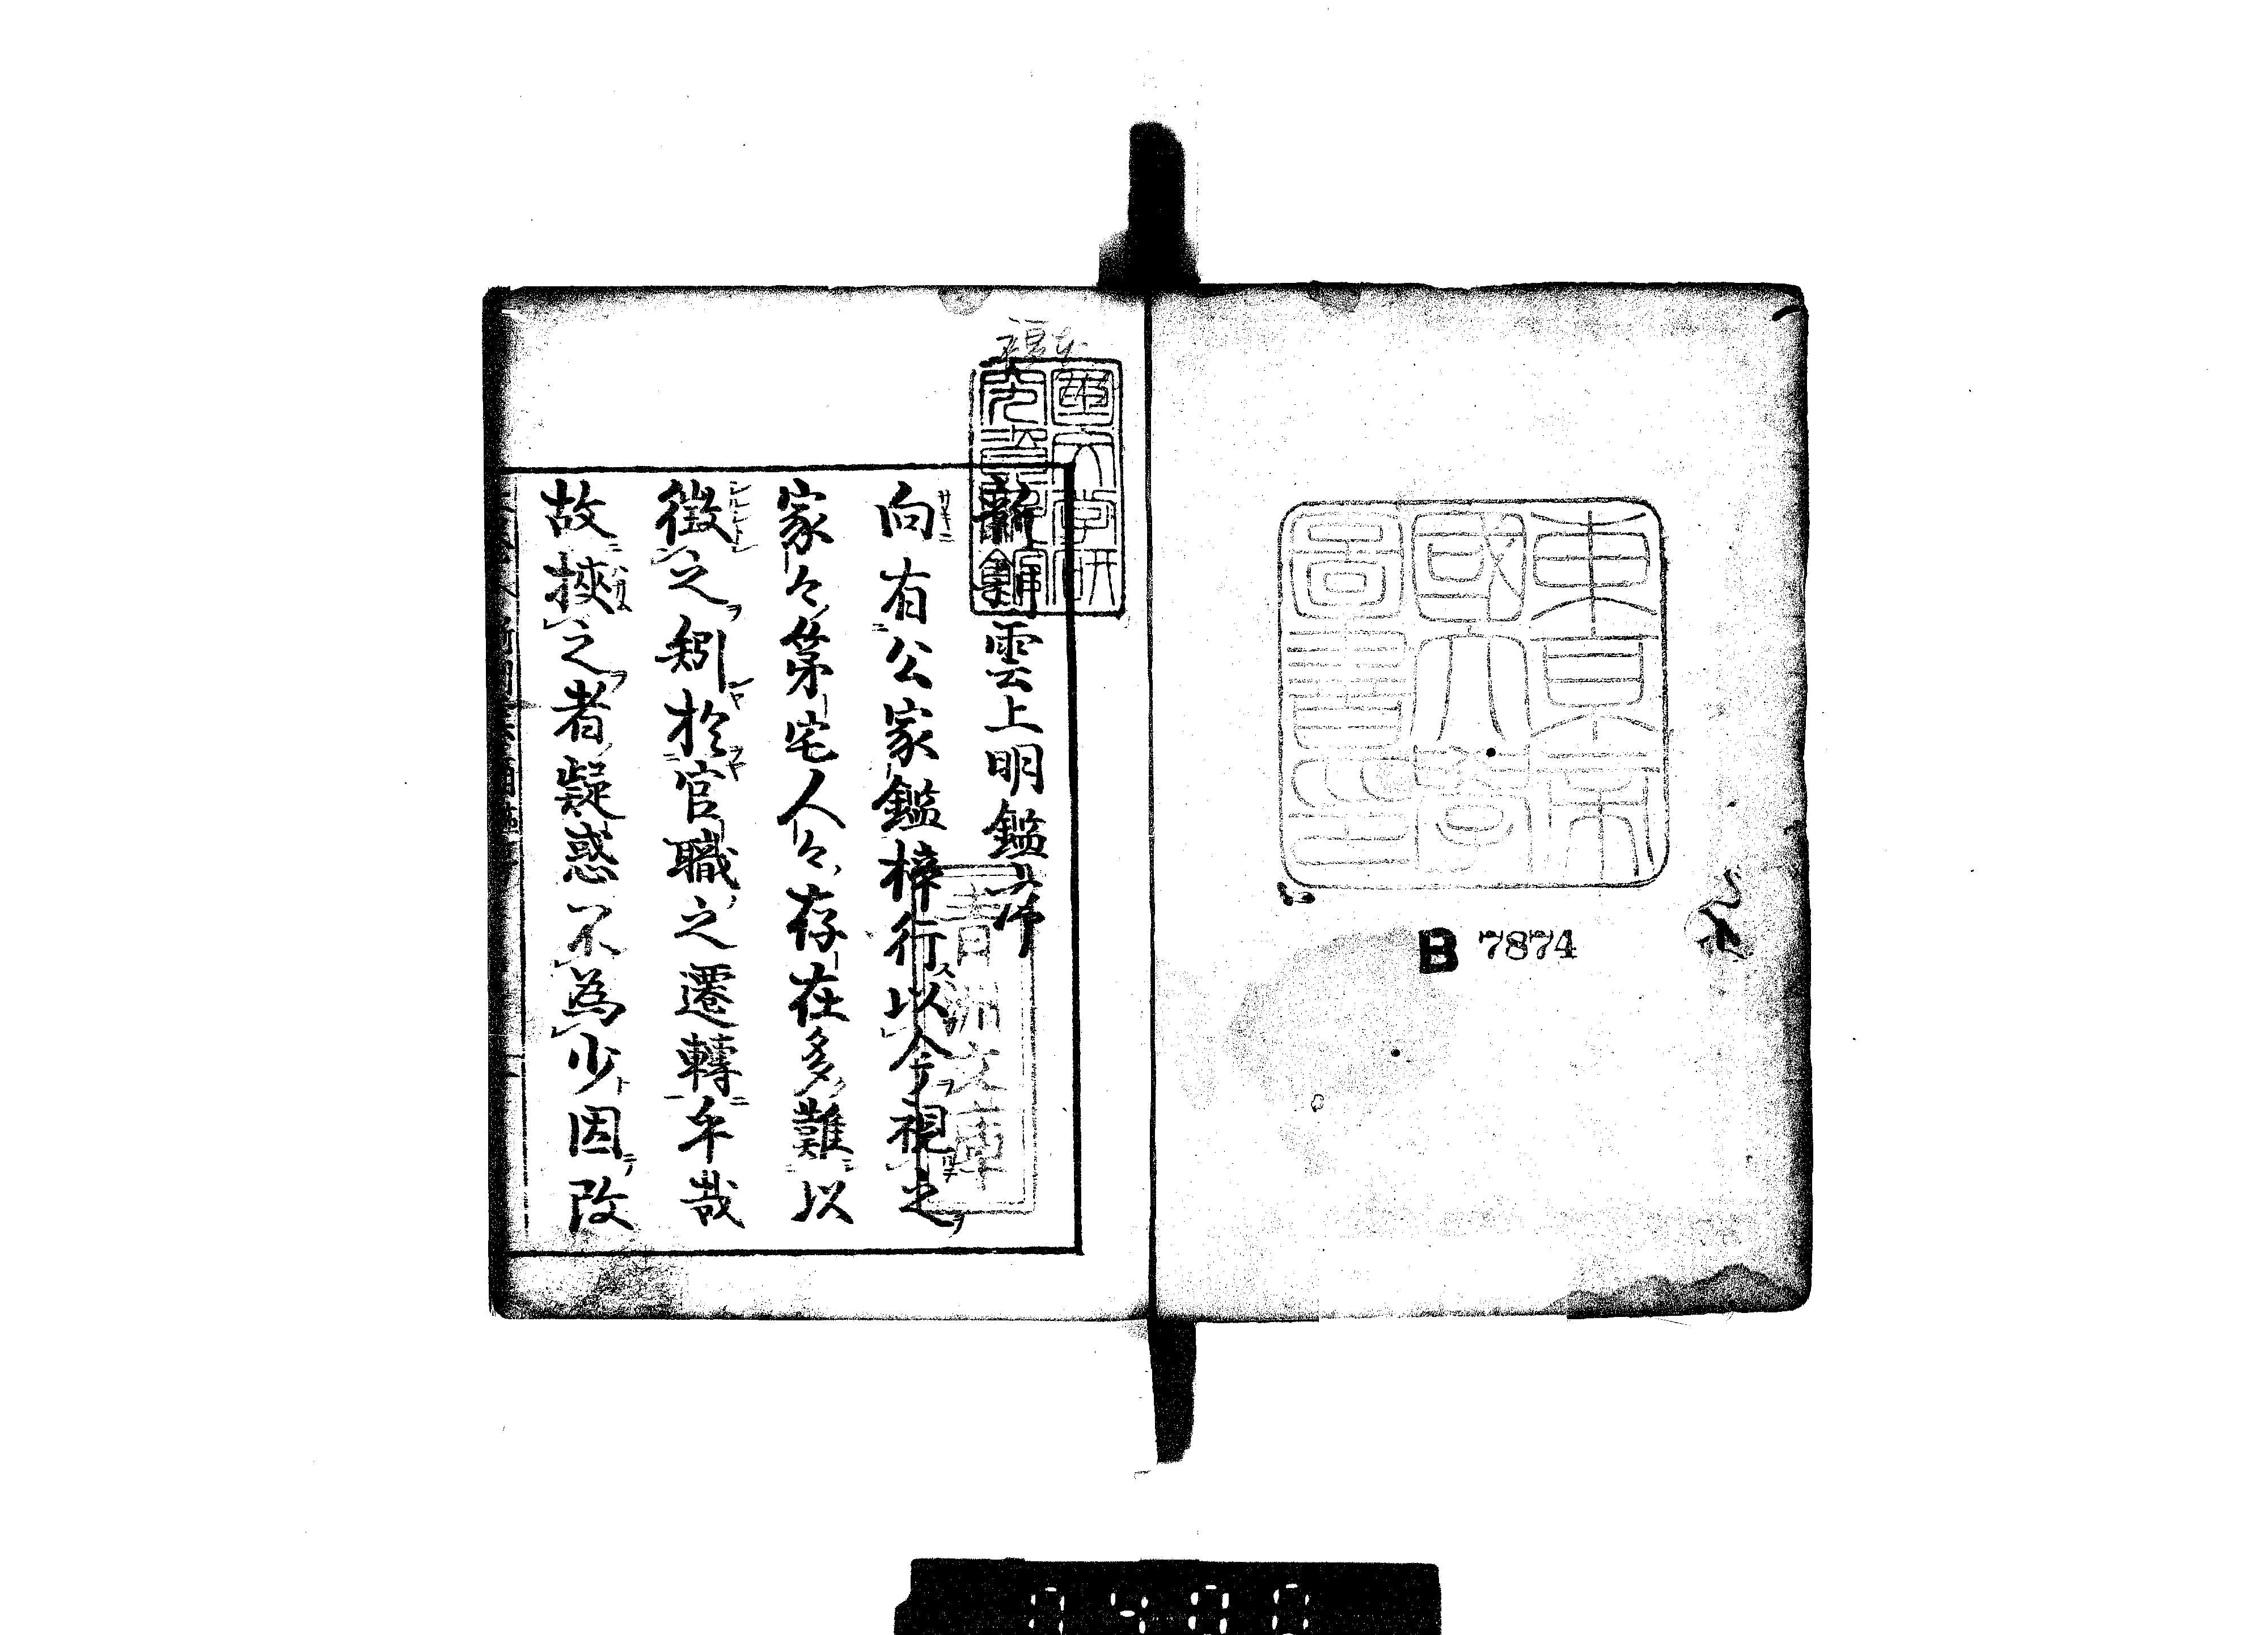 東京帝
國大學
圖書印
B 7874
新鐫雲上明鑑序
向有公家鑑梓行以令視之
家々第宅人々存在多難以
徴之矧於官職之遷轉乎哉
故挾之者疑惑不為少因改
青洲文庫